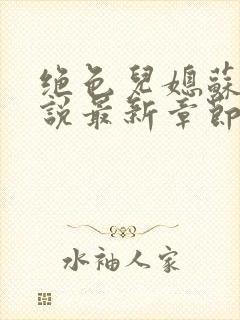 绝色兒媳蘇
說最新章節
水袖人家